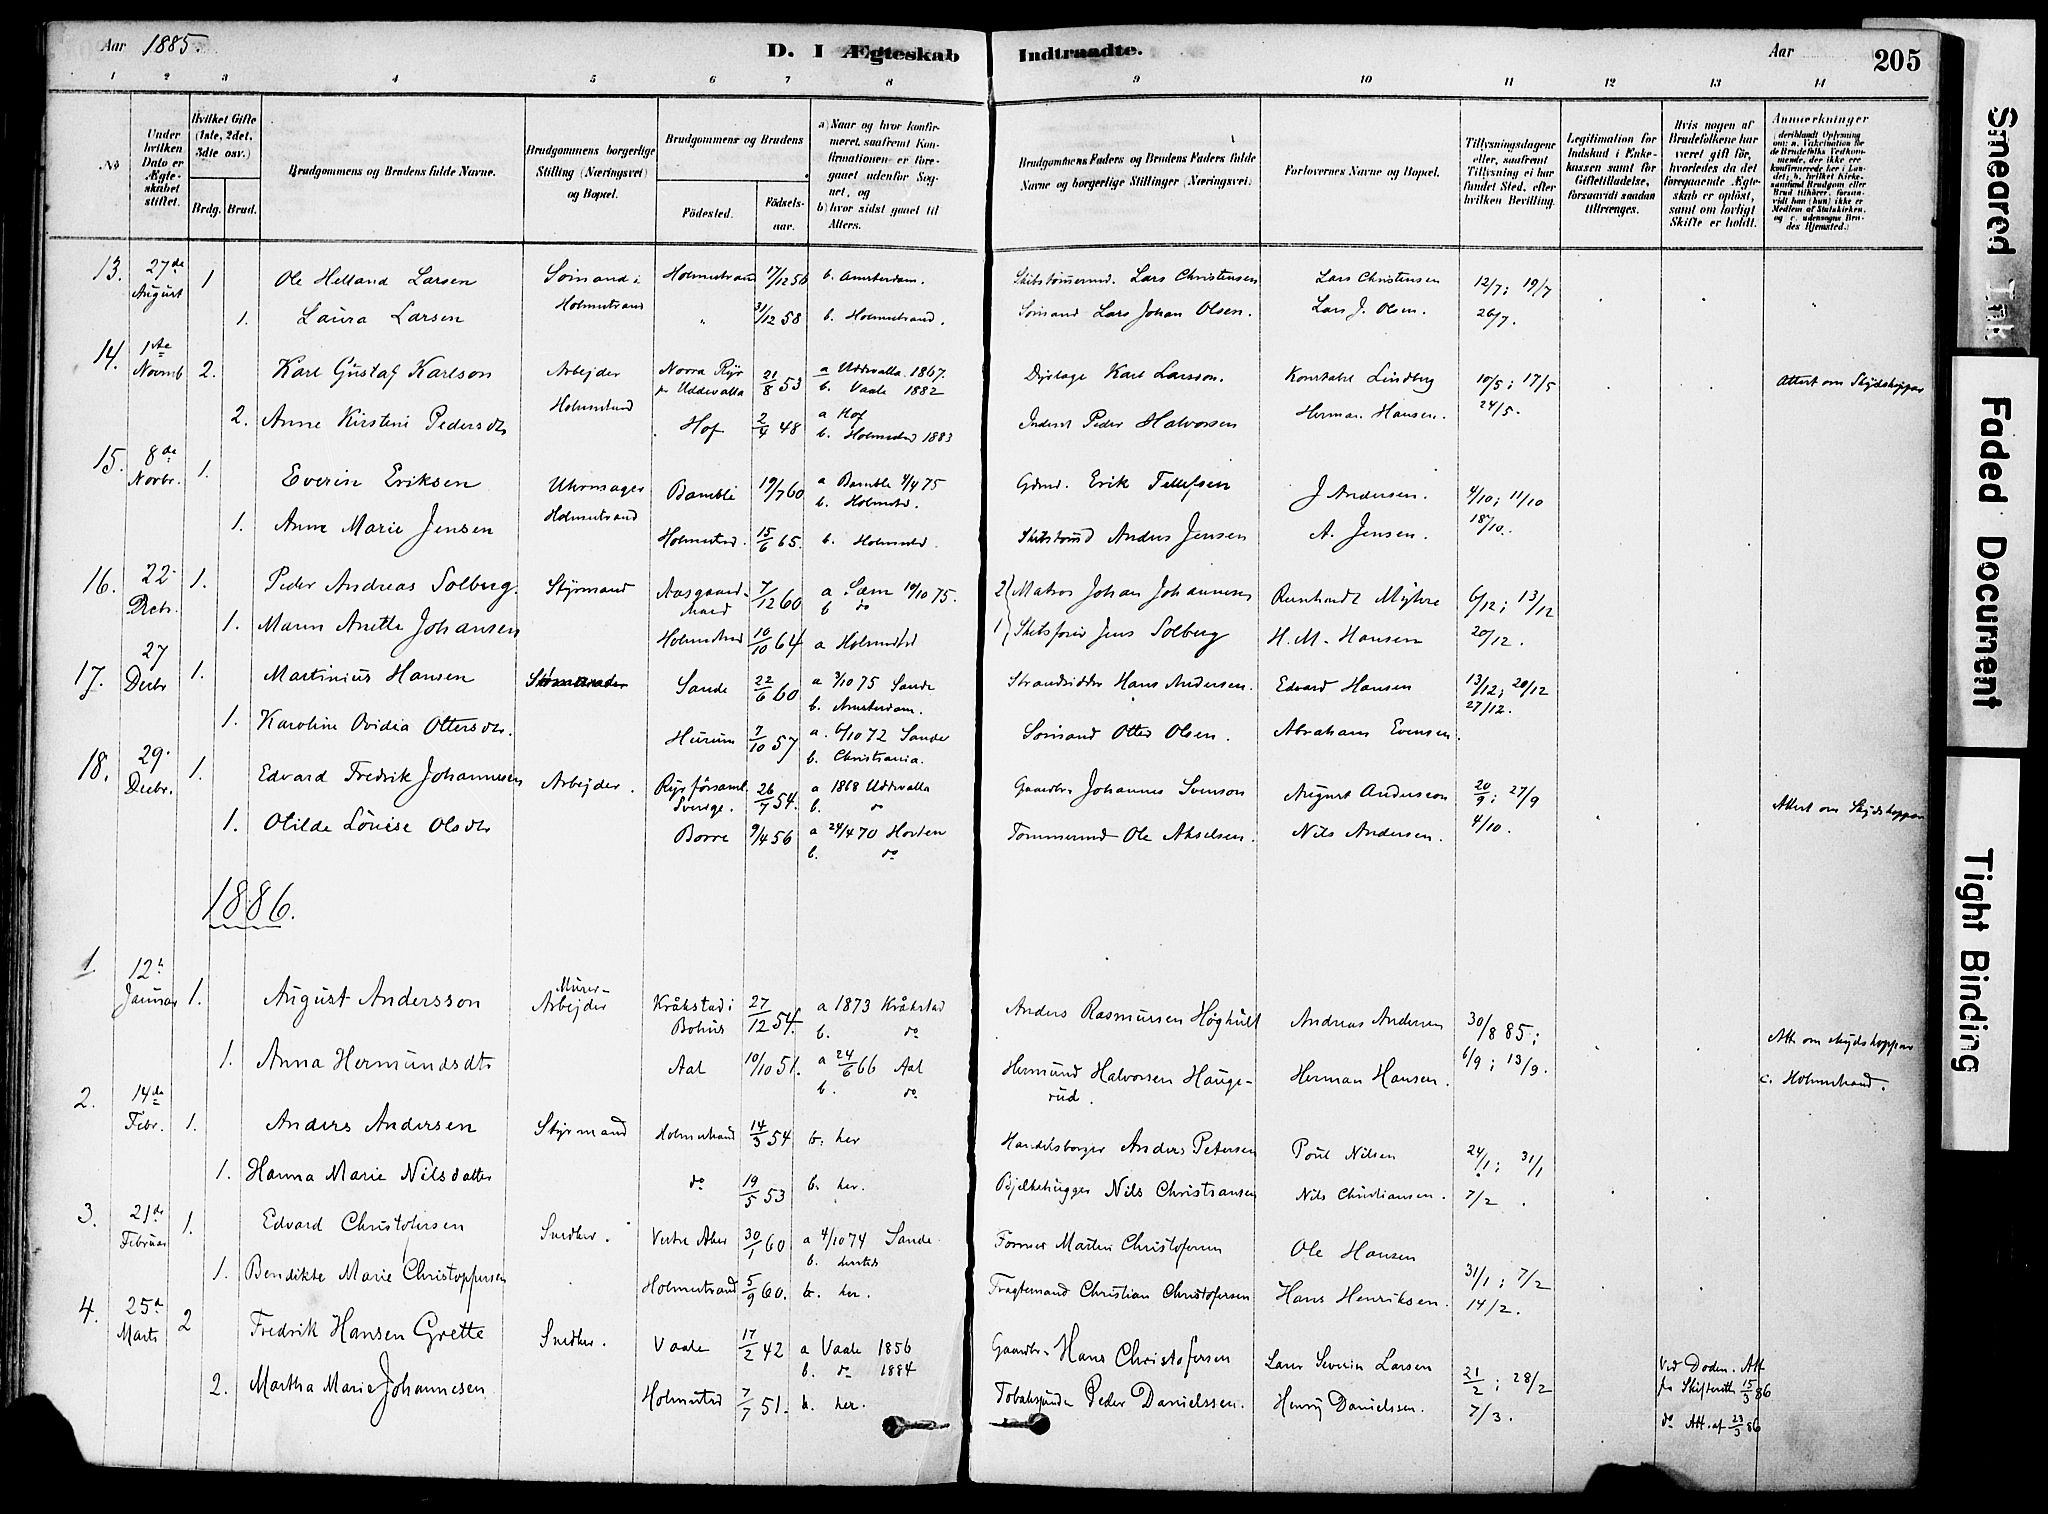 Aar 1885.
D. I Ægteskab Indtraadte.
Aar
205
1 2 3 4 5 6 7 8 9 10 11 12 13 14
No
Under hvilken Dato er Ægteskabet stiftet.
Hvilket Gifte (1ste, 2det, 3die osv.)
Brdg. Brud.
Brudgommens og Brudens fulde Navne.
Brudgommens borgerlige Stilling (Næringsvei) og Bopæl.
Brudgommens og Brudens
Födested.
Födsels-aar.
a) Naar og hvor konfirmeret, saafremt Konfirmationen er foregaaet udenfor Sognet, og
b) hvor sidst gaaet til Alters.
Brudgommens Faders og Brudens Faders fulde Navne og borgerlige Stillinger (Næringsvei)
Forlovernes Navne og Bopæl.
Tillysningsdagene eller, saafremt Tillysning ei har fundet Sted, efter hvilken Bevilling.
Legitimation for Indskud i Enkekassen samt for Giftetilladelse, forsaavidt saadan tiltrænges.
Hvis nogen af Brudefolkene har været gift för, hvorledes da det foregaaende Ægteskab er oplöst, samt om lovligt Skifte er holdt.
Anmerkninger
13. 27de August 1 Ole Helland Larsen Sömand i Holmestrand Holmestrand 17/12 56 b. Amsterdam. Skibstömrmd. Lars Christensen Lars Christensen 12/7; 19/7
1. Laura Larsen " 31/12 58 b. Holmestrand. Sömand Lars Johan Olsen. Lars J. Olsen. 26/7.
14. 1ste Novmb 2. Karl Gustaf Karlson Arbejder Holmestrand Norra Ryr pr Uddevalla 21/8 53 a Uddevalla 1867. b. Vaale 1882 Karl Larsson. Konstabel Lindberg 10/5; 17/5 Attest om Skydskopper
2. Anne Kirstine Pedersdtr Hof 2/4 48 a Hof b. Holmestrd 1883 Inderst Peder Halvorsen Herman Hansen. 24/5.
15. 8de Novbr. 1. Everin Eriksen Uhrmager Holmestrand Bamble 19/7 60 a Bamble 4/4 75 b. Holmestd. Gdmd. Erik Tellefsen J Andersen. 4/10; 11/10
1. Anne Marie Jensen Holmestrd. 15/6 65. b. Holmestrd. Skibstömd Anders Jensen A. Jensen. 18/10.
16. 22 Debr. 1. Peder Andreas Solberg. Styrmand Aasgaardstrand 7/12 60 a Sem 10/10 75. b do 2) Matros Johan Johannesen Reinhardt Myhre 6/12; 13/12
1. Maren Anette Johansen Holmestrd 10/10 64 a Holmestrd 1) Skibsförer Jens Solberg H. M. Hansen 20/12.
17. 27 Decbr 1. Martinius Hansen Sande 22/6 60 a 3/10 75 Sande b. Amsterdam. Strandsidder Hans Andersen. Edvard Hansen 13/12; 20/12
1. Karoline Ovidia Ottersdtr. Hurum 7/10 57 a. 6/10 72 Sande b. Christiania. Sömand Otter Olsen. Abraham Evensen. 27/12.
18. 29. Decbr. 1. Edvard Fredrik Johannesen Arbejder. Ryrs församl. Sverige. 26/7 54. a 1868 Uddevalla b. do Gaardbr. Johannes Svenson August Anderson 20/9; 27/9 Attest om Skydskopper
1. Otilde Lovise Olsdtr Borre 9/4 56 a 24/4 70 Horten b. do Tommermd Ole Akselsen. Nils Andersen. 4/10.
1886.
1. 12te Januar 1. August Andersson Murer-Arbejder Kråkstad i Bohus 27/12 54. a 1873 Kråkstad b. do Anders Rasmussen Höghult Andreas Andersen 30/8 85; Att om skydskopper
1. Anna Hermundsdtr Aal 10/10 51. a 24/6 66 Aal b. do Hermund Halvorsen Haugerud. Herman Hansen. 6/9; 13/9. c. Holmestrand.
2. 14de Febr. 1. Anders Andersen Styrmand Holmestrand 14/3 54 b. her Handelsborger Anders Petersen Poul Nilsen 24/1; 31/1
1. Hanna Marie Nilsdatter do 19/5 53 b. her. Bjelkehugger Nils Christiansen Nils Christiansen. 7/2.
3. 21de Februar 1. Edvard Christofersen Snedker. Vestre Aker 30/1 60 a 4/10 74 Sande b. Former Martin Christofersen Ole Hansen 31/1; 7/2
1. Bendikte Marie Christophersen Holmestrand 5/9 60. b. her. Fragtemand Christian Christofersen Hans Henriksen. 14/2.
4. 25de Marts 2 Fredrik Hansen Grette Snedker. Vaale 17/2 42 a Vaale 1856 b. do 1884 Gaardbr. Hans Christofersen Lars Severin Larsen 21/2; 28/2 Ved Döden. Att fra Skifteretten 15/3 86
2. Martha Marie Johannesen. Holmestrd 7/7 51. b. her. Tobakspinder Peder Danielssen. Henry Danielssen. 7/3. do Att. af 23/3 86
Smeared Ink
Faded Document
Tight Binding